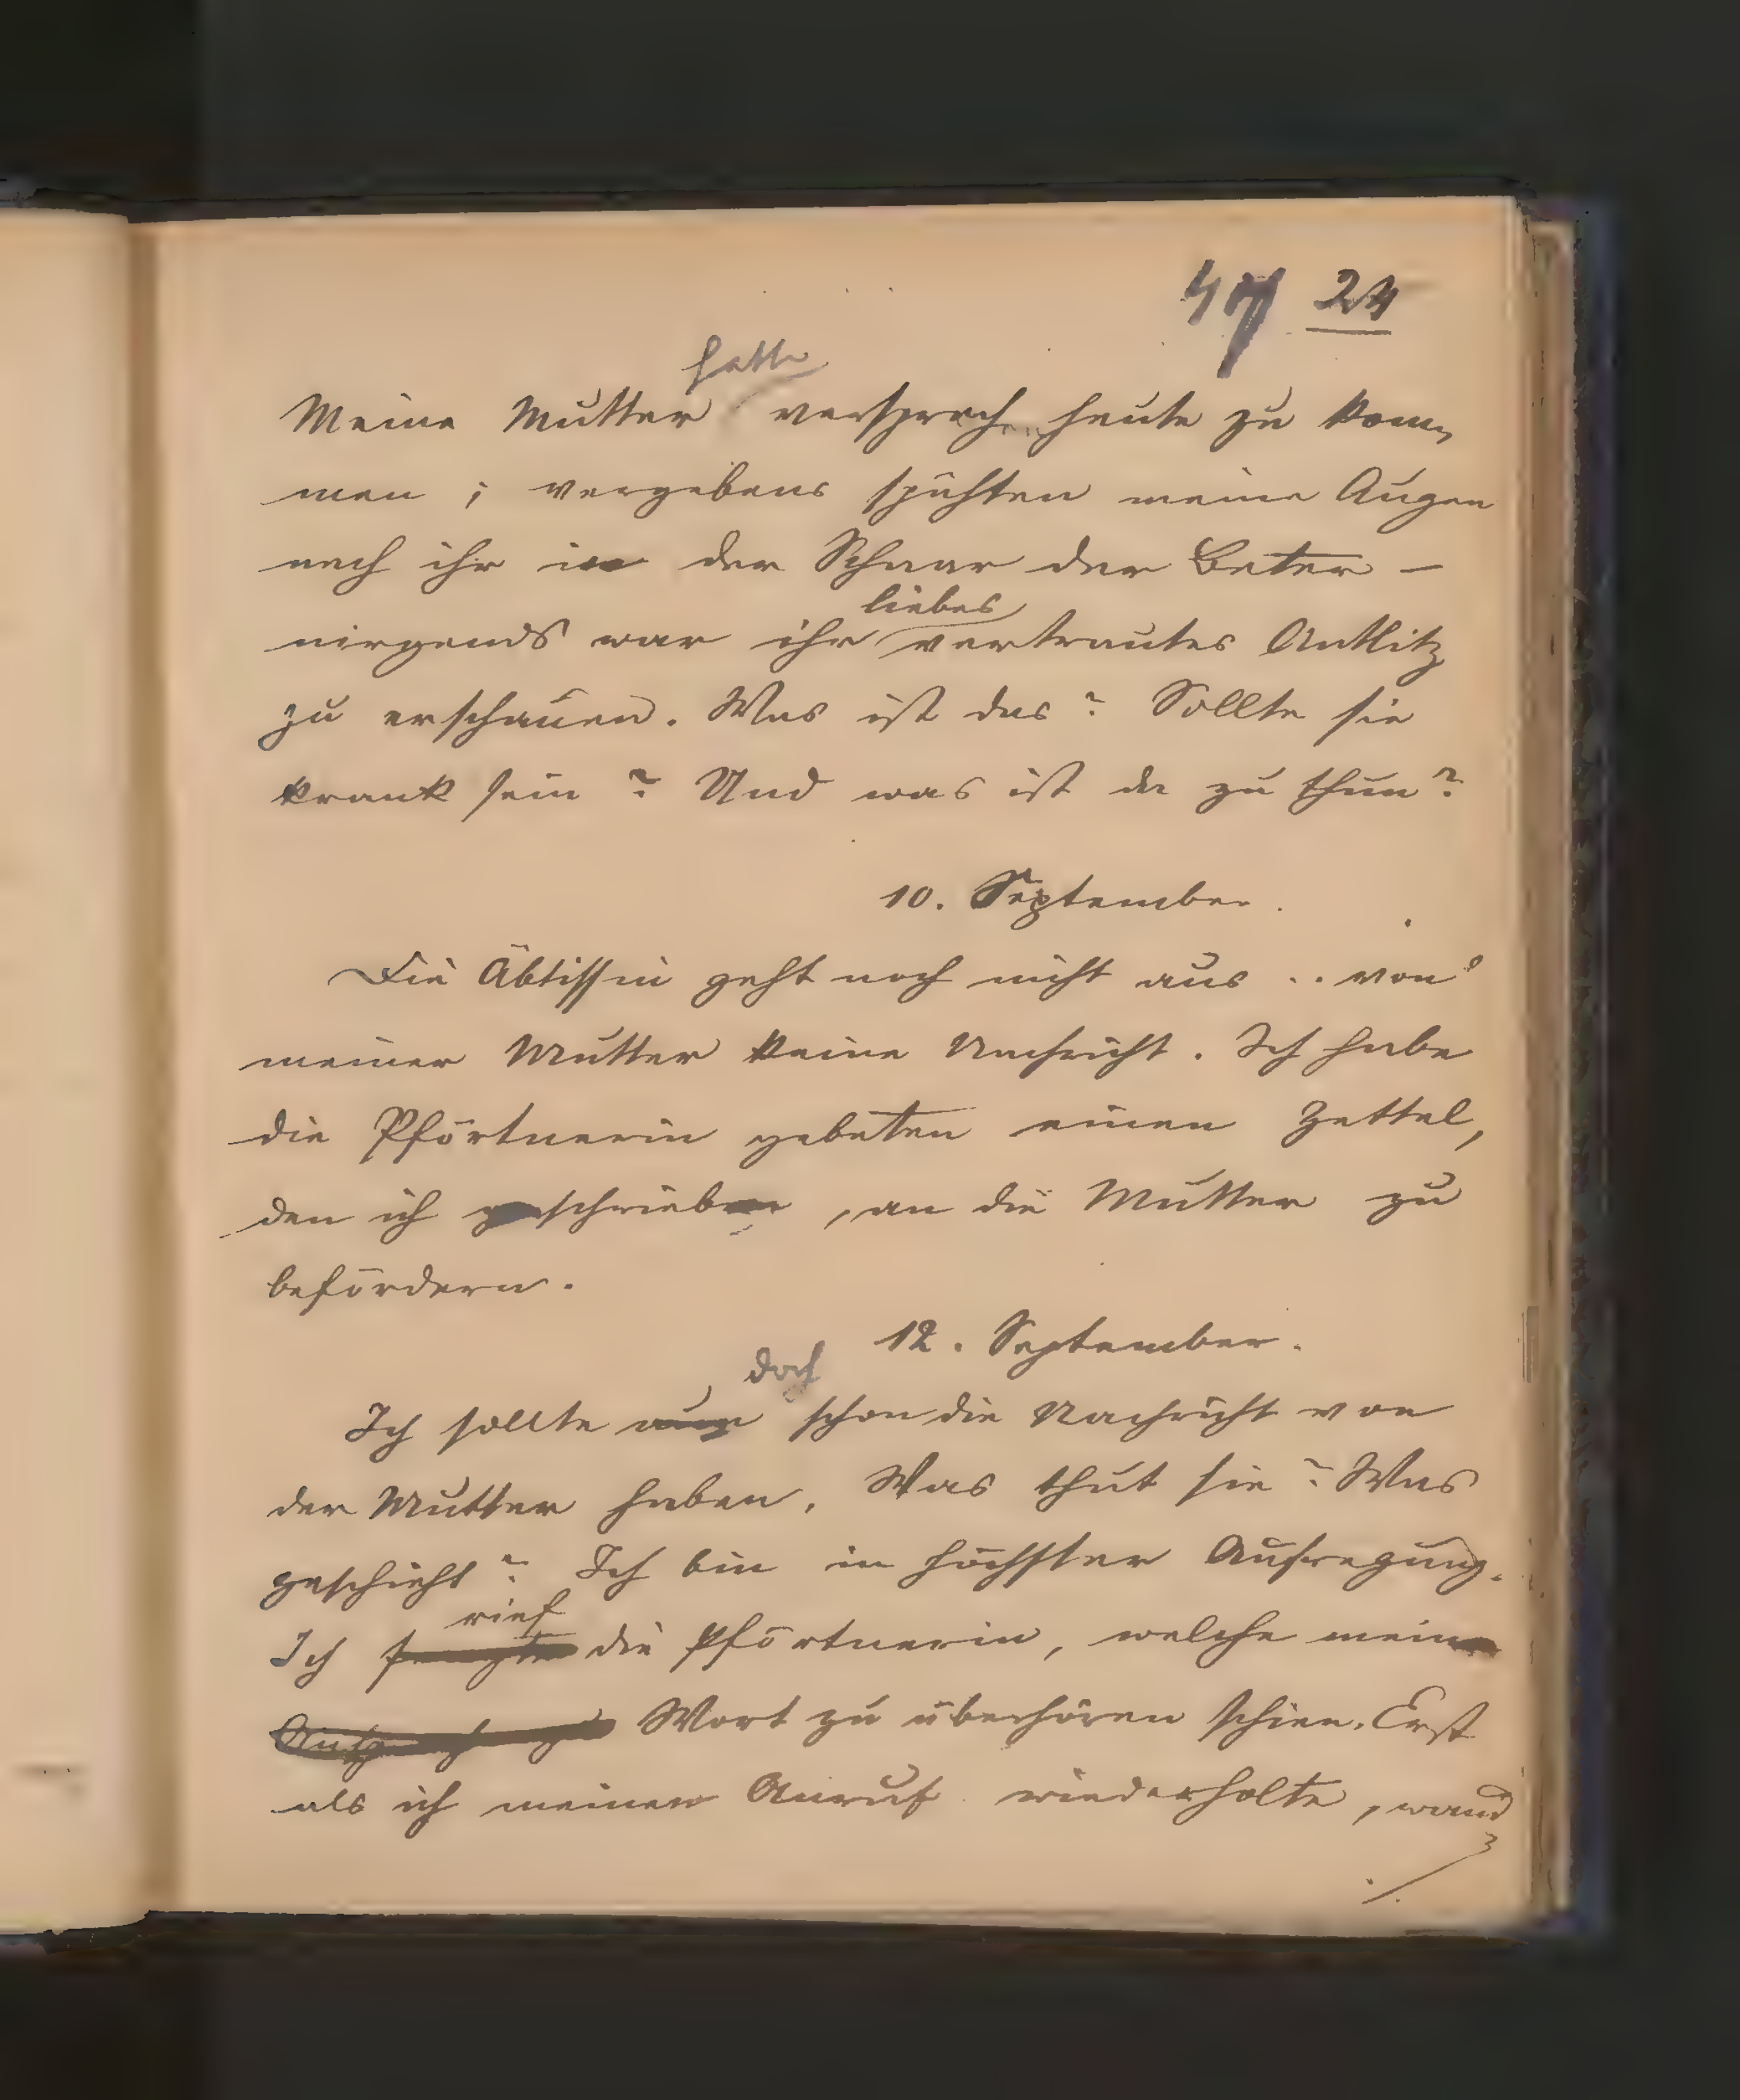 47 24
hatte
Meine Mutter versprach heute zu kom-
men ; vergebens spähten meine Augen
nach ihr in der Schaar der Beter –
liebes
nirgends war ihr vertrautes Antlitz
zu erschauen. Was ist das? Sollte sie
krank sein? Und was ist da zu thun?
10. September.
Die Äbtissin geht noch nicht aus .. von
meiner Mutter keine Nachricht. Ich habe
die Pförtnerin gebeten einen Zettel,
den ich geschrieben, an die Mutter zu
befördern.
12. September.
doch
Ich sollte nun schon die Nachricht von
der Mutter haben. Was thut sie? Was
geschieht? Ich bin in höchster Aufregung.
rief
Ich fragte die Pförtnerin, welche mein
Wort zu überhören schien. Erst
als ich meinen Anruf wiederholte, wand